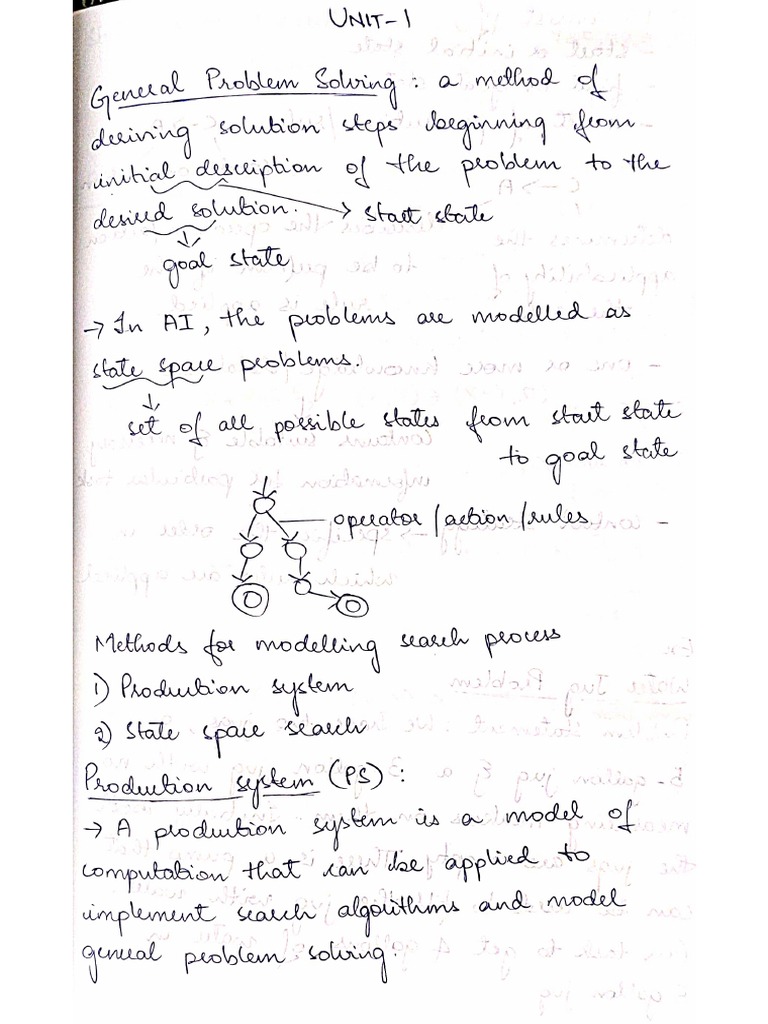 UNIT-1
General Problem Solving : a method of
deriving solution steps beginning from
initial description of the problem to the
desired solution. → start state
goal state
→ In AI, the problems are modelled as
state space problems.
set of all possible states from start state
to goal state
operator/action/rules
Methods for modelling search process
1) Production system
2) State space search
Production system (PS) :
→ A production system is a model of
computation that can be applied to
implement search algorithms and model
general problem solving.